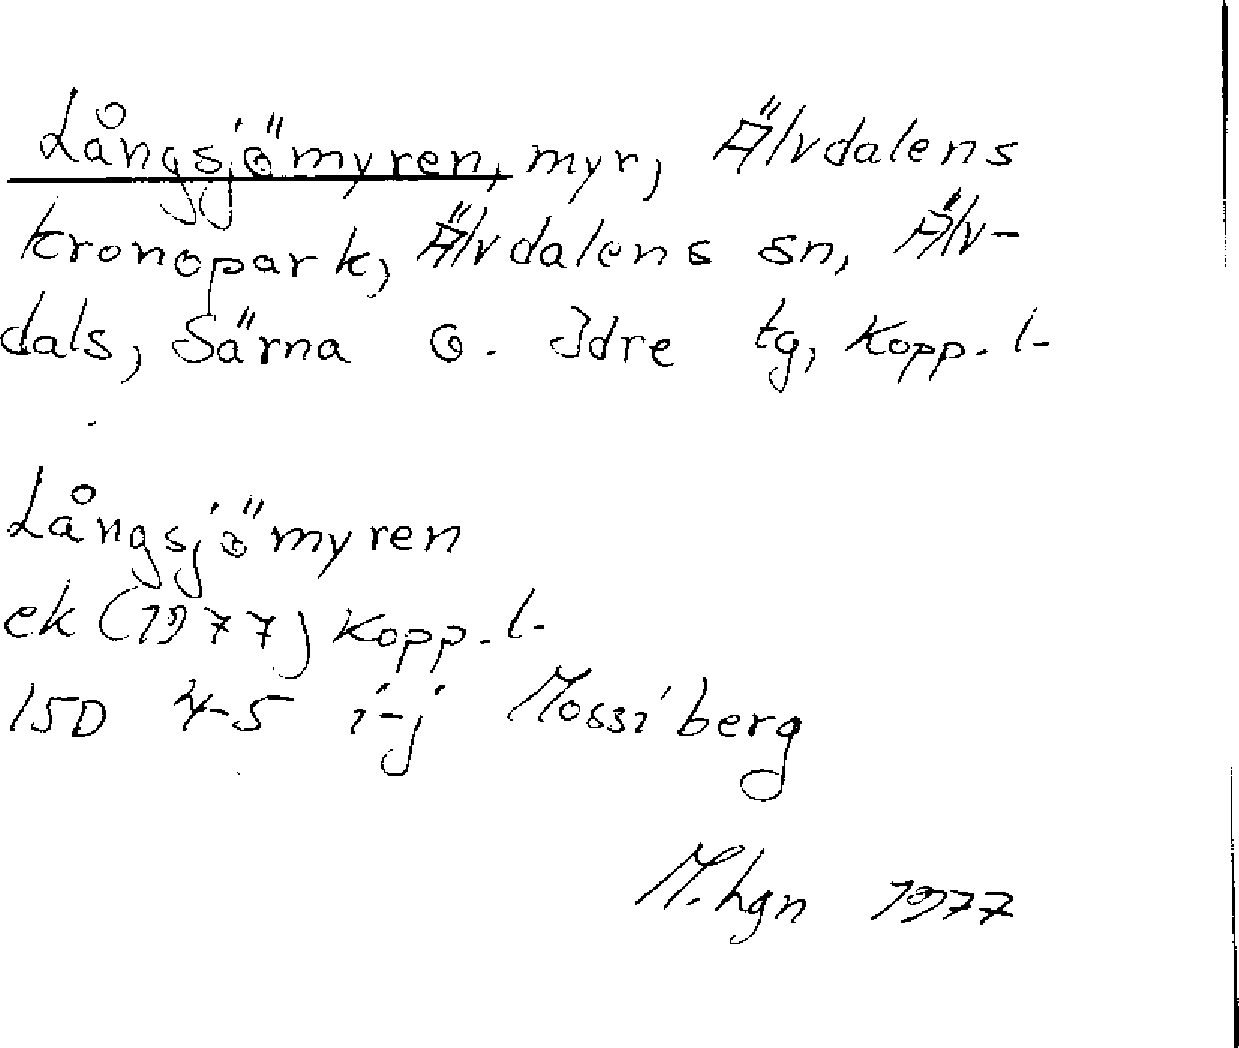 Långsjömyren, myr, Älvdalens
kronopark, Älvdalens sn, Älv-
dals, Särna o. Idre tg, Kopp. l.
Långsjömyren
ek (1977) Kopp. l.
15D 4-5 i-j Mossiberg
M.hgn 1977